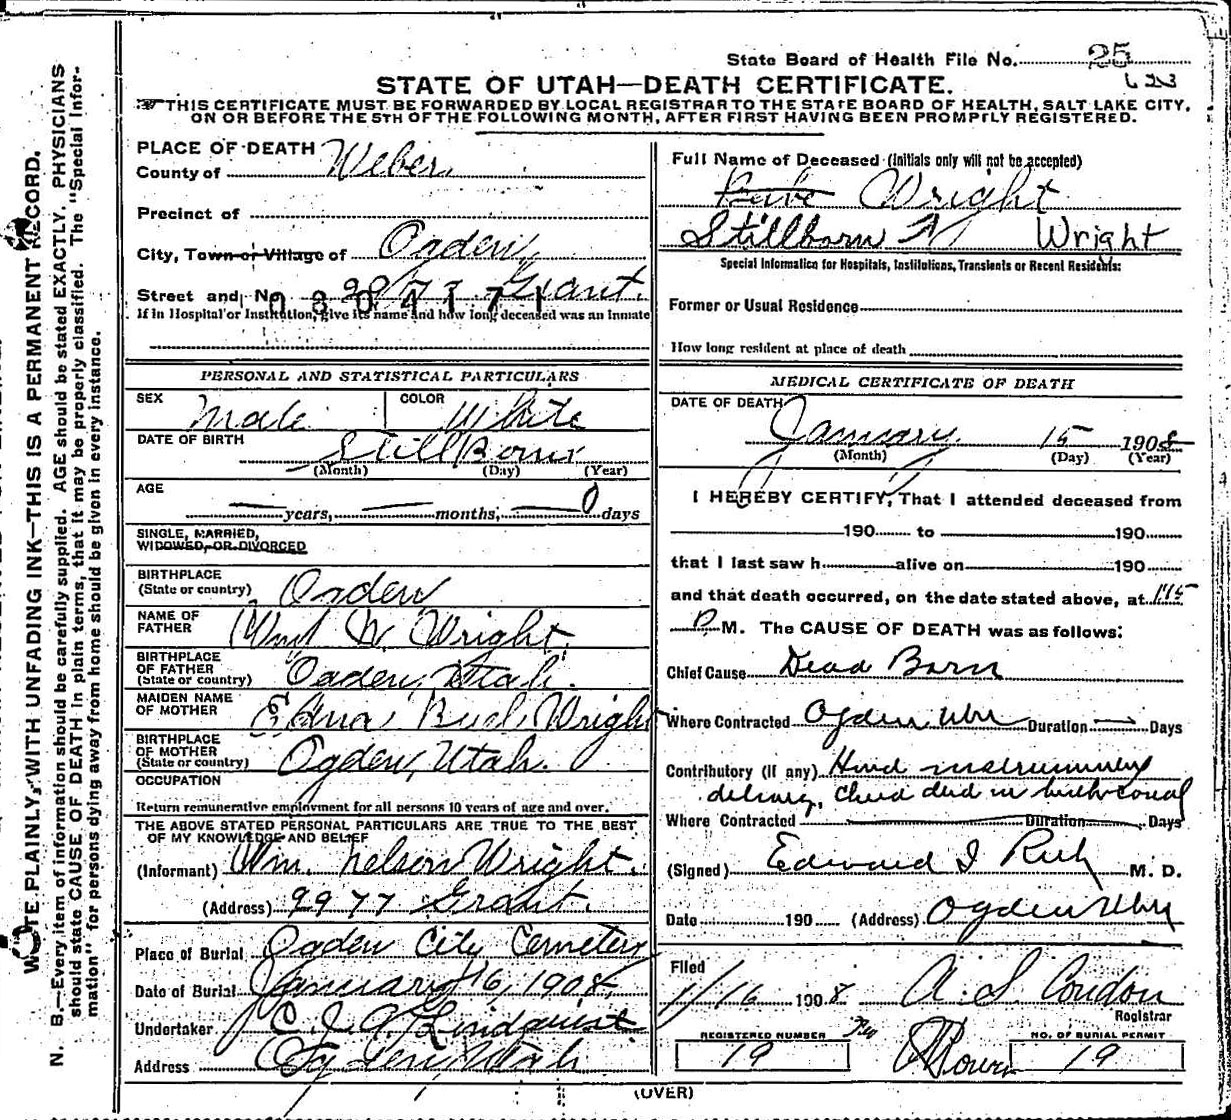 State Board of Health File No. 25
STATE OF UTAH—DEATH CERTIFICATE.
THIS CERTIFICATE MUST BE FORWARDED BY LOCAL REGISTRAR TO THE STATE BOARD OF HEALTH, SALT LAKE CITY,
ON OR BEFORE THE 5TH OF THE FOLLOWING MONTH, AFTER FIRST HAVING BEEN PROMPTLY REGISTERED.
WRITE PLAINLY, WITH UNFADING INK—THIS IS A PERMANENT RECORD.
N. B.—Every item of information should be carefully supplied. AGE should be stated EXACTLY. PHYSICIANS
should state CAUSE OF DEATH in plain terms, that it may be properly classified. The "Special Infor-
mation" for persons dying away from home should be given in every instance.
PLACE OF DEATH
County of Weber
Precinct of
City, Town or Village of Ogden
Street and No. Grant.
0804171
If in Hospital or Institution, give its name and how long deceased was an inmate
PERSONAL AND STATISTICAL PARTICULARS
SEX Male COLOR White
DATE OF BIRTH Still Born
(Month) (Day) (Year)
AGE
— years, — months, — 0 days
SINGLE, MARRIED,
WIDOWED, OR DIVORCED
BIRTHPLACE
(State or country) Ogden
NAME OF
FATHER Wm N. Wright
BIRTHPLACE
OF FATHER
(State or country) Ogden, Utah.
MAIDEN NAME
OF MOTHER Edna Wright
BIRTHPLACE
OF MOTHER
(State or country) Ogden, Utah.
OCCUPATION
Return remunerative employment for all persons 10 years of age and over.
THE ABOVE STATED PERSONAL PARTICULARS ARE TRUE TO THE BEST
OF MY KNOWLEDGE AND BELIEF
(Informant) Wm. Nelson Wright.
(Address) 2977 Grant.
Place of Burial Ogden City Cemetery
Date of Burial January 16, 1908
Undertaker Lindquist
Address Ogden, Utah
Full Name of Deceased (Initials only will not be accepted)
Babe Wright
Stillborn Wright
Special Information for Hospitals, Institutions, Transients or Recent Residents:
Former or Usual Residence
How long resident at place of death
MEDICAL CERTIFICATE OF DEATH
DATE OF DEATH
January 15 1908
(Month) (Day) (Year)
I HEREBY CERTIFY, That I attended deceased from
190 to 190
that I last saw h alive on 190
and that death occurred, on the date stated above, at 1 45
P. M. The CAUSE OF DEATH was as follows:
Chief Cause Dead Born
Where Contracted Ogden Utah Duration — Days
Contributory (if any) Hard instrumental
delivery, child died in birth canal
Where Contracted Duration Days
(Signed) Edward I Rich M. D.
Date 190 (Address) Ogden Utah
Filed
1/16 1908 A. S. Condon
Registrar
REGISTERED NUMBER
19
NO. OF BURIAL PERMIT
19
(OVER)